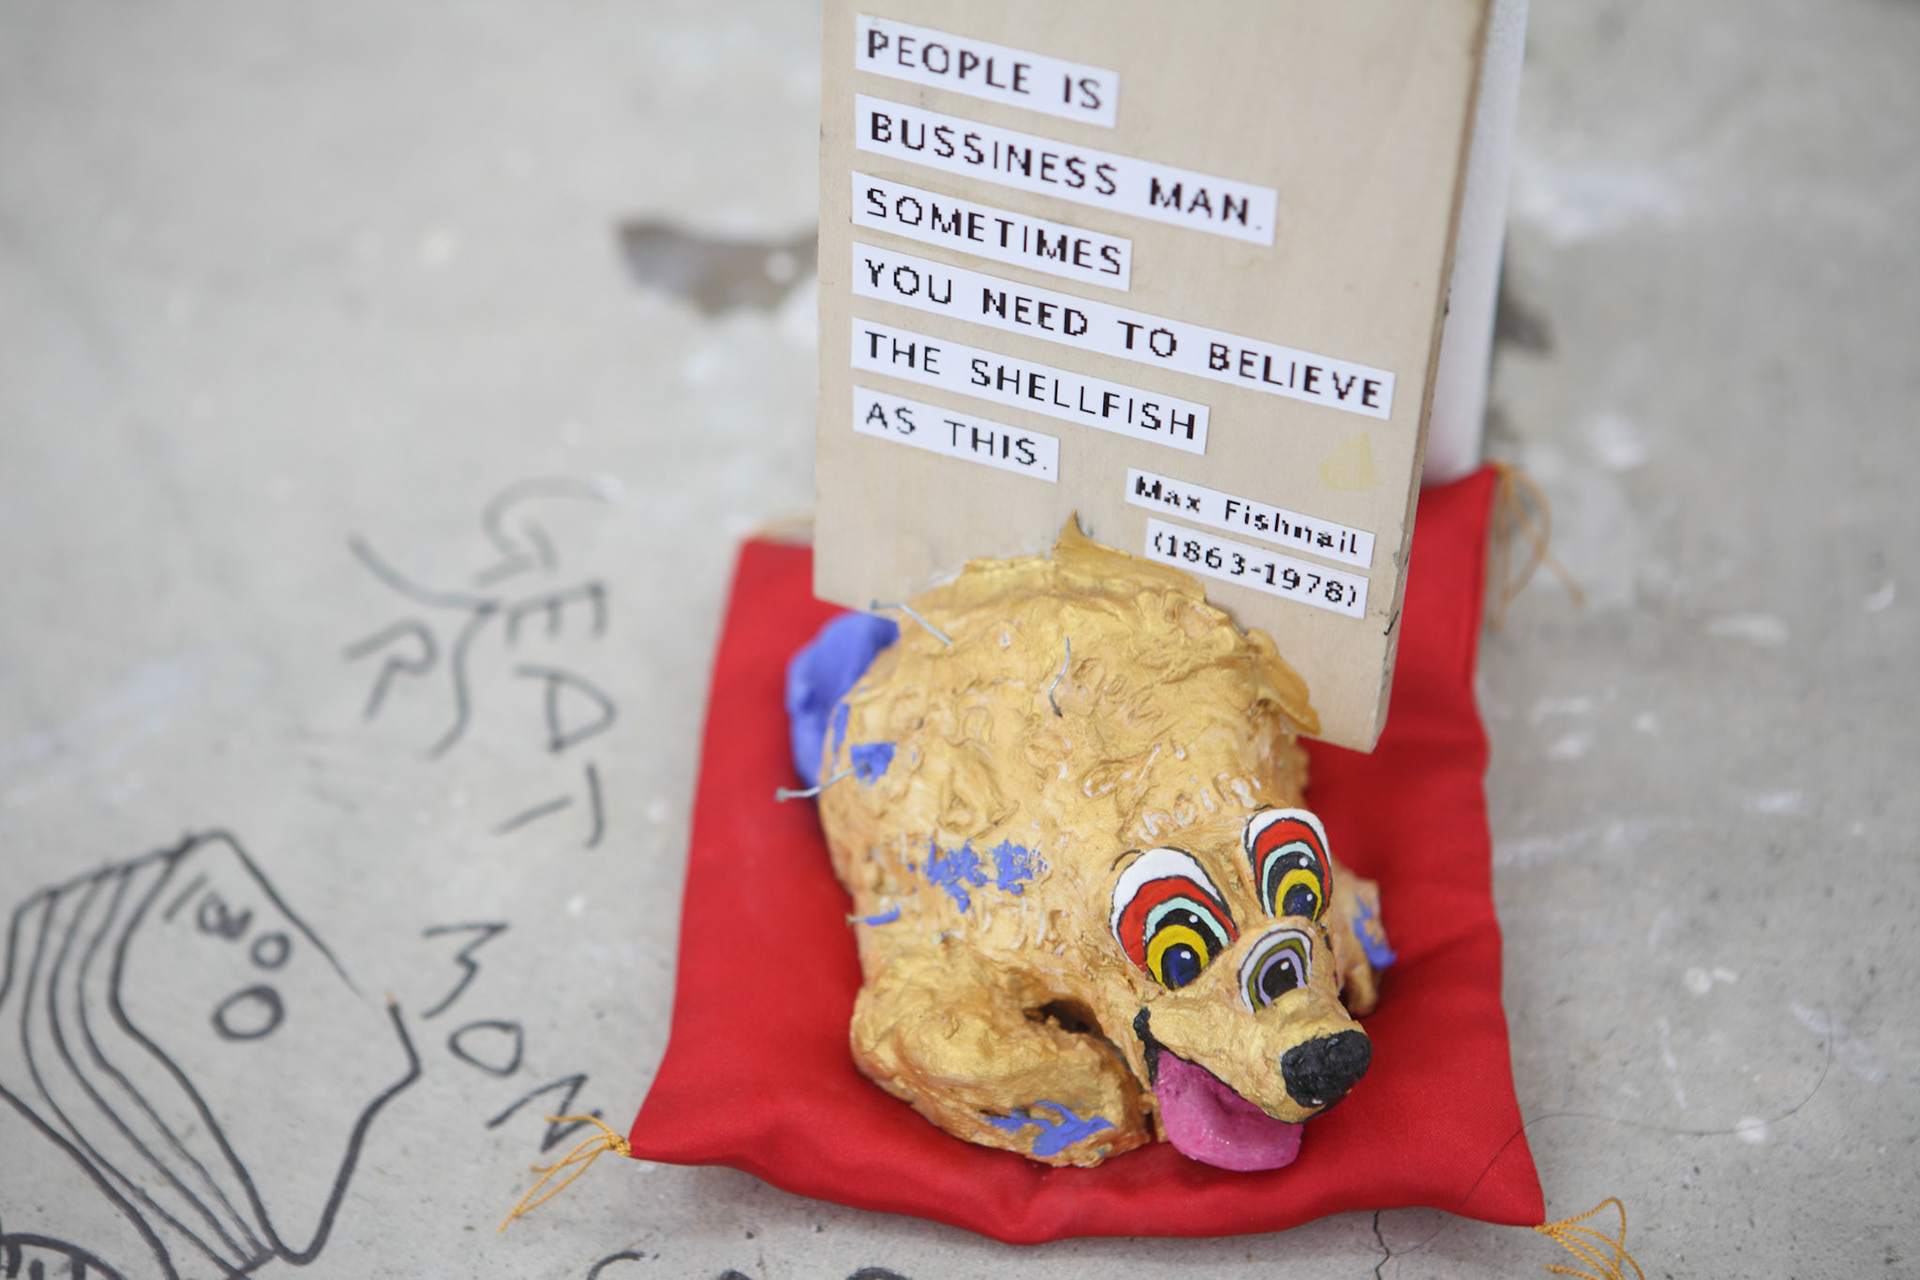 PEOPLE IS
BUSSINESS MAN.
SOMETIMES
YOU NEED TO BELIEVE
THE SHELLFISH
AS THIS.
Max Fishnail
(1863-1978)
GEAT
MON